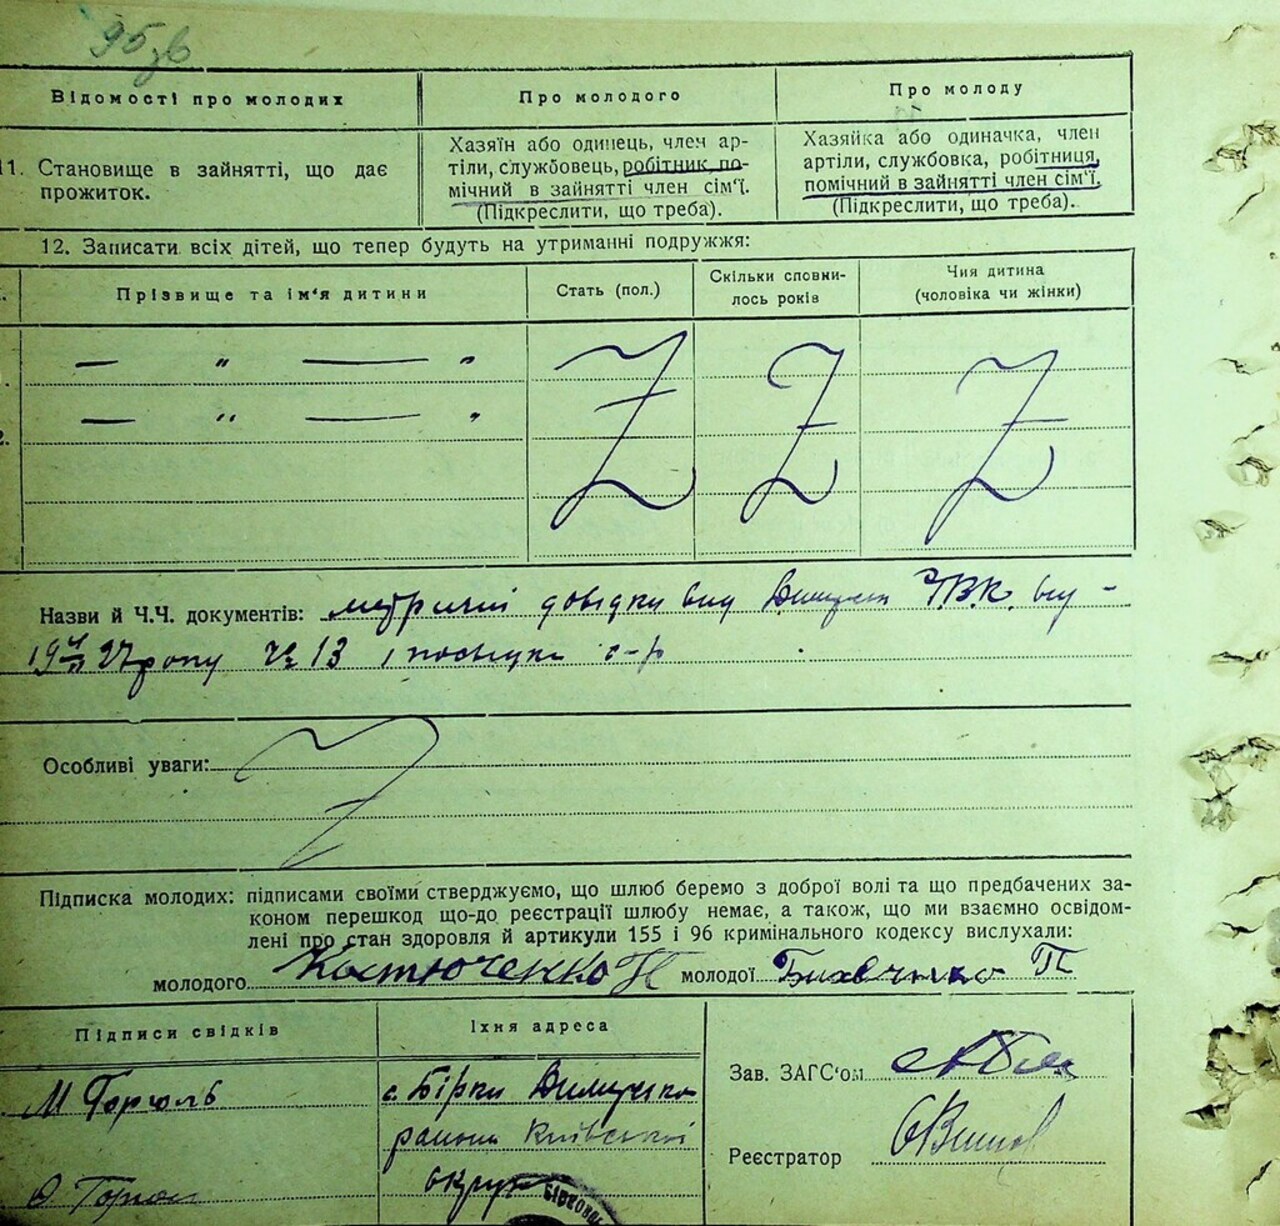 95 зв
Відомості про молодих
Про молодого
Про молоду
11. Становище в зайнятті, що дає
прожиток.
Хазяїн або одинець, член ар-
тіли, службовець, робітник по-
мічний в зайнятті член сім'ї.
(Підкреслити, що треба).
Хазяйка або одиначка, член
артіли, службовка, робітниця,
помічний в зайнятті член сім'ї.
(Підкреслити, що треба).
12. Записати всіх дітей, що тепер будуть на утриманні подружжя:
Прізвище та ім'я дитини
Стать (пол.)
Скільки сповни-
лось років
Чия дитина
(чоловіка чи жінки)
— " — "
— " — "
Назви й Ч.Ч. документів: метричні довідки від І.В.К. від
27 року № 13 і посвідки с-р
Особливі уваги:
Підписка молодих: підписами своїми стверджуємо, що шлюб беремо з доброї волі та що предбачених за-
коном перешкод що-до реєстрації шлюбу немає, а також, що ми взаємно освідом-
лені про стан здоровля й артикули 155 і 96 кримінального кодексу вислухали:
молодого Костюченко молодої П
Підписи свідків
Їхня адреса
М Горголь
с. Бірки Димерсько
району Київської
округи
Зав. ЗАГС'ом
Реєстратор